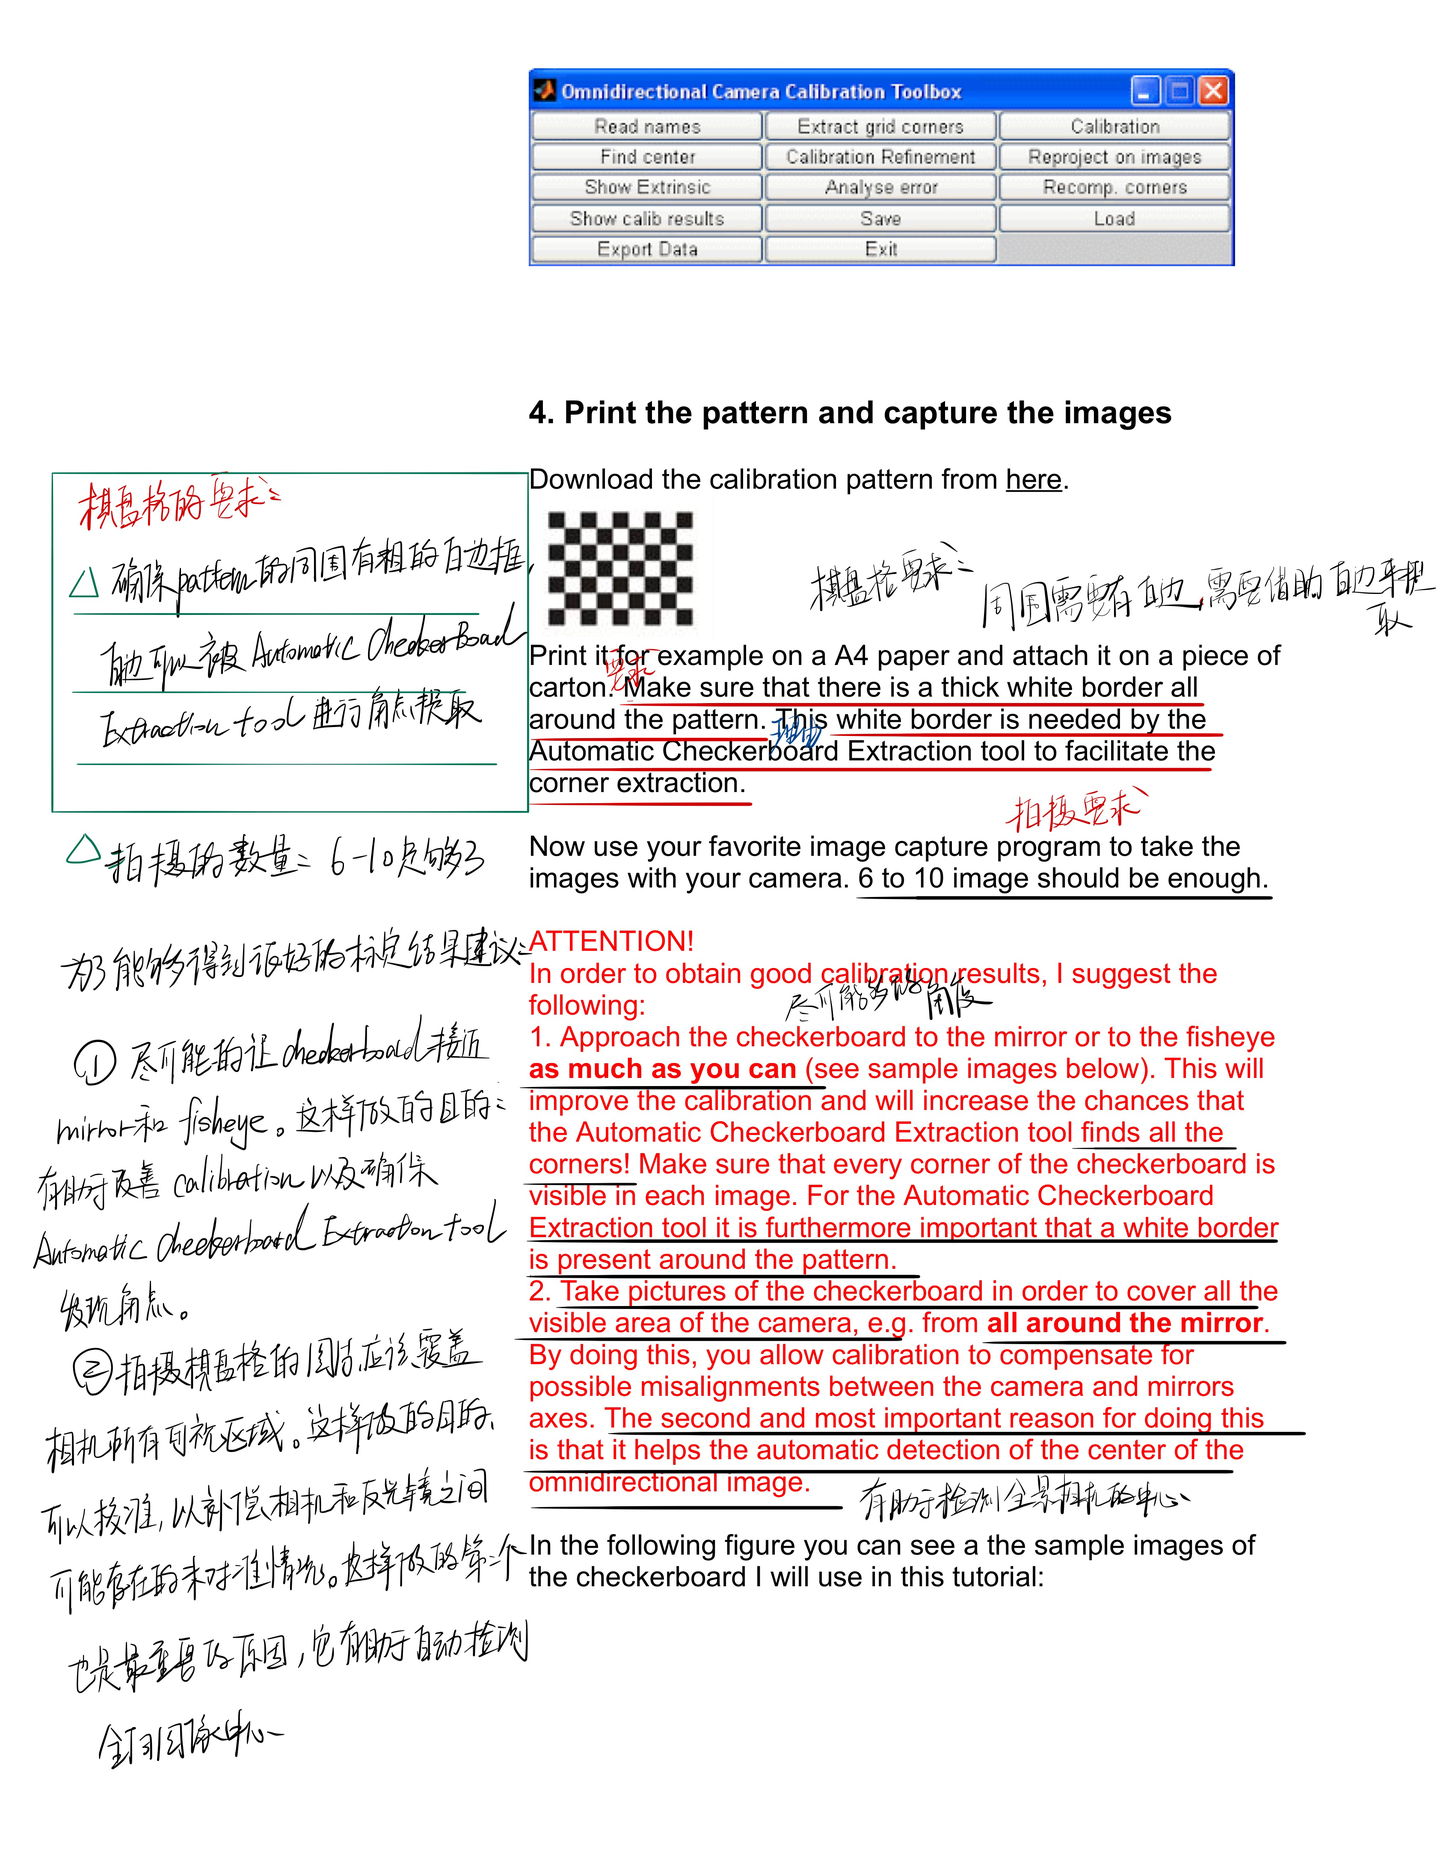 Omnidirectional Camera Calibration Toolbox
Read names Extract grid corners Calibration
Find center Calibration Refinement Reproject on images
Show Extrinsic Analyse error Recomp. corners
Show calib results Save Load
Export Data Exit
4. Print the pattern and capture the images
Download the calibration pattern from here.
棋盘格要求：
周围需要有白边,需要借助白边来提
取
Print it for example on a A4 paper and attach it on a piece of
要求
carton. Make sure that there is a thick white border all
around the pattern. This white border is needed by the
理由
Automatic Checkerboard Extraction tool to facilitate the
corner extraction.
拍摄要求
Now use your favorite image capture program to take the
images with your camera. 6 to 10 image should be enough.
ATTENTION!
In order to obtain good calibration results, I suggest the
following:
尽可能多的角度
1. Approach the checkerboard to the mirror or to the fisheye
as much as you can (see sample images below). This will
improve the calibration and will increase the chances that
the Automatic Checkerboard Extraction tool finds all the
corners! Make sure that every corner of the checkerboard is
visible in each image. For the Automatic Checkerboard
Extraction tool it is furthermore important that a white border
is present around the pattern.
2. Take pictures of the checkerboard in order to cover all the
visible area of the camera, e.g. from all around the mirror.
By doing this, you allow calibration to compensate for
possible misalignments between the camera and mirrors
axes. The second and most important reason for doing this
is that it helps the automatic detection of the center of the
omnidirectional image.
有助于检测全景相机的中心
In the following figure you can see a the sample images of
the checkerboard I will use in this tutorial:
棋盘格的要求：
确保pattern的周围有粗的白边框,
白边可以被Automatic CheckerBoard
Extraction tool进行角点提取
拍摄的数量：6-10足够了
为了能够得到很好的标定结果建议：
① 尽可能的让checkerboard接近
mirror和fisheye。这样做的目的：
有助于改善calibration以及确保
Automatic Checkerboard Extraction tool
发现角点。
②拍摄棋盘格的图片应该覆盖
相机所有可视区域。这样做的目的、
可以校准,以补偿相机和反光镜之间
可能存在的未对准情况。这样做的第二个
也是最重要的原因,它有助于自动检测
中心